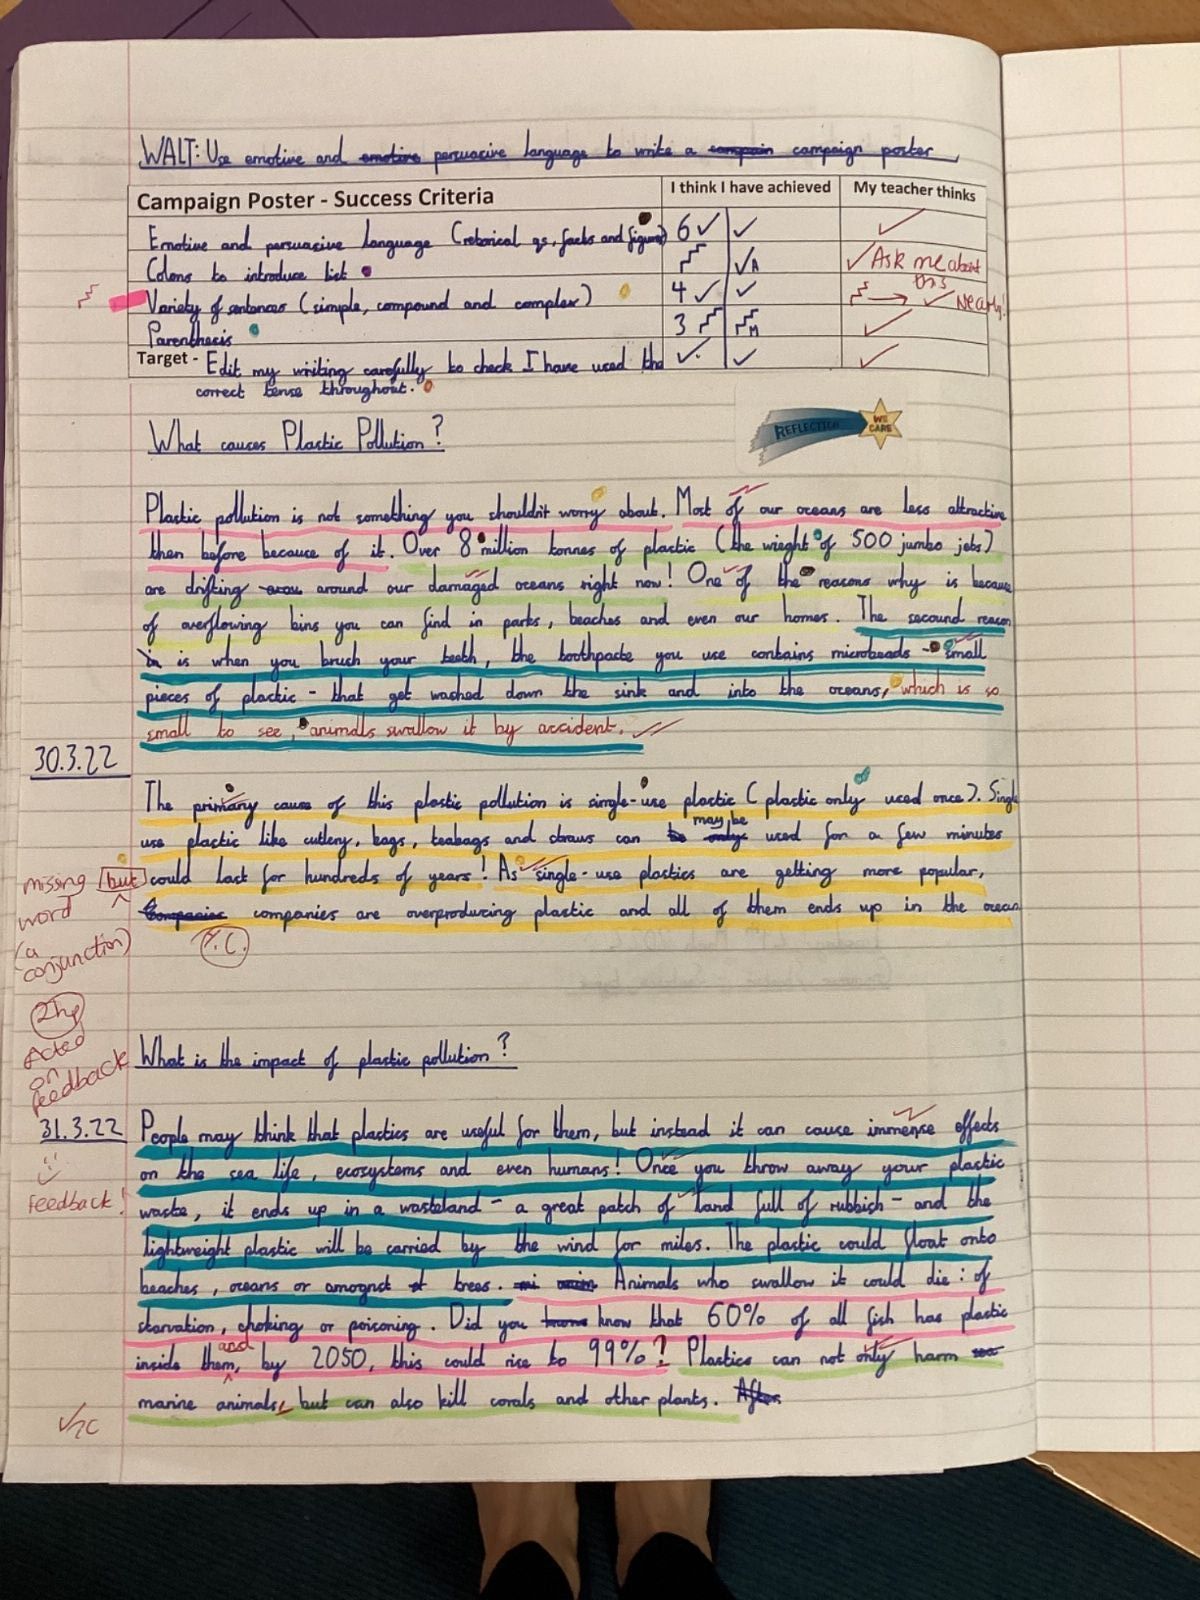 WALT: Use emotive and emotive persuacive language to write a campain campaign poster
Campaign Poster - Success Criteria
I think I have achieved
My teacher thinks
Emotive and persuacive language (retorical qs, facts and figures) 6 ✓ ✓ ✓
Colons to introduce list ✓A ✓ Ask me about this
Variety of sentences (simple, compound and complex) 4 ✓ ✓ → ✓ Nearly!
Parenthesis 3 M ✓
Target - Edit my writing carefully to check I have used the ✓ ✓ ✓
correct tense throughout.
What causes Plastic Pollution?
REFLECTION
WE CARE
Plastic pollution is not something you shouldn't worry about. Most of our oceans are less attractive
then before because of it. Over 8 million tonnes of plastic (the wieght of 500 jumbo jets)
are drifting around our damaged oceans right now! One of the reasons why is because
of overflowing bins you can find in parks, beaches and even our homes. The secound reason
is when you brush your teeth, the toothpaste you use contains microbeads - small
pieces of plastic - that get washed down the sink and into the oceans, which is so
small to see, animals swallow it by accident.
30.3.22
The primary cause of this plastic pollution is single-use plastic (plastic only used once). Single
use plastic like cutlery, bags, teabags and straws can be only may be used for a few minutes
but could last for hundreds of years! As single-use plastics are getting more popular,
Companies companies are overproducing plastic and all of them ends up in the ocean
missing
word
(a
conjunction)
Y.C.
2hp
Acted
on
feedback
What is the impact of plastic pollution?
31.3.22
feedback!
People may think that plastics are useful for them, but instead it can cause immense effects
on the sea life, ecosystems and even humans! Once you throw away your plastic
waste, it ends up in a wasteland - a great patch of land full of rubbish - and the
lightweight plastic will be carried by the wind for miles. The plastic could float onto
beaches, oceans or amognst trees. Animals who swallow it could die: of
starvation, choking or poisoning. Did you know that 60% of all fish has plastic
inside them, and by 2050, this could rise to 99%? Plastics can not only harm sea
marine animals, but can also kill corals and other plants. After